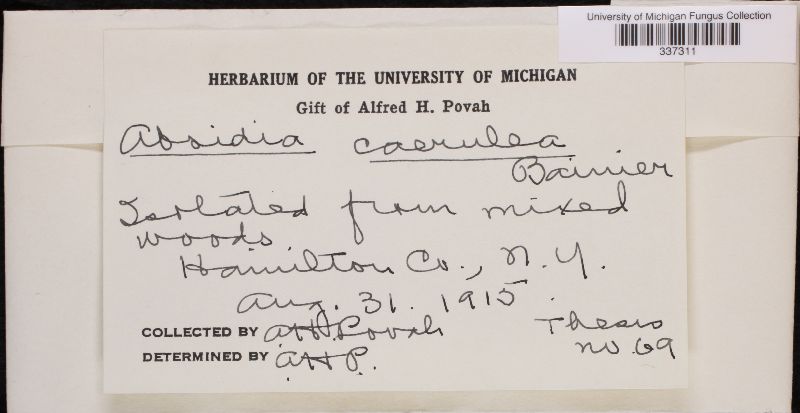 University of Michigan Fungus Collection
337311
HERBARIUM OF THE UNIVERSITY OF MICHIGAN
Gift of Alfred H. Povah
Absidia caerulea
Bainier
Isolated from mixed
woods
Hamilton Co., N.Y.
Aug. 31. 1915.
COLLECTED BY A.H.Povah
Thesis
no. 69
DETERMINED BY A.H.P.